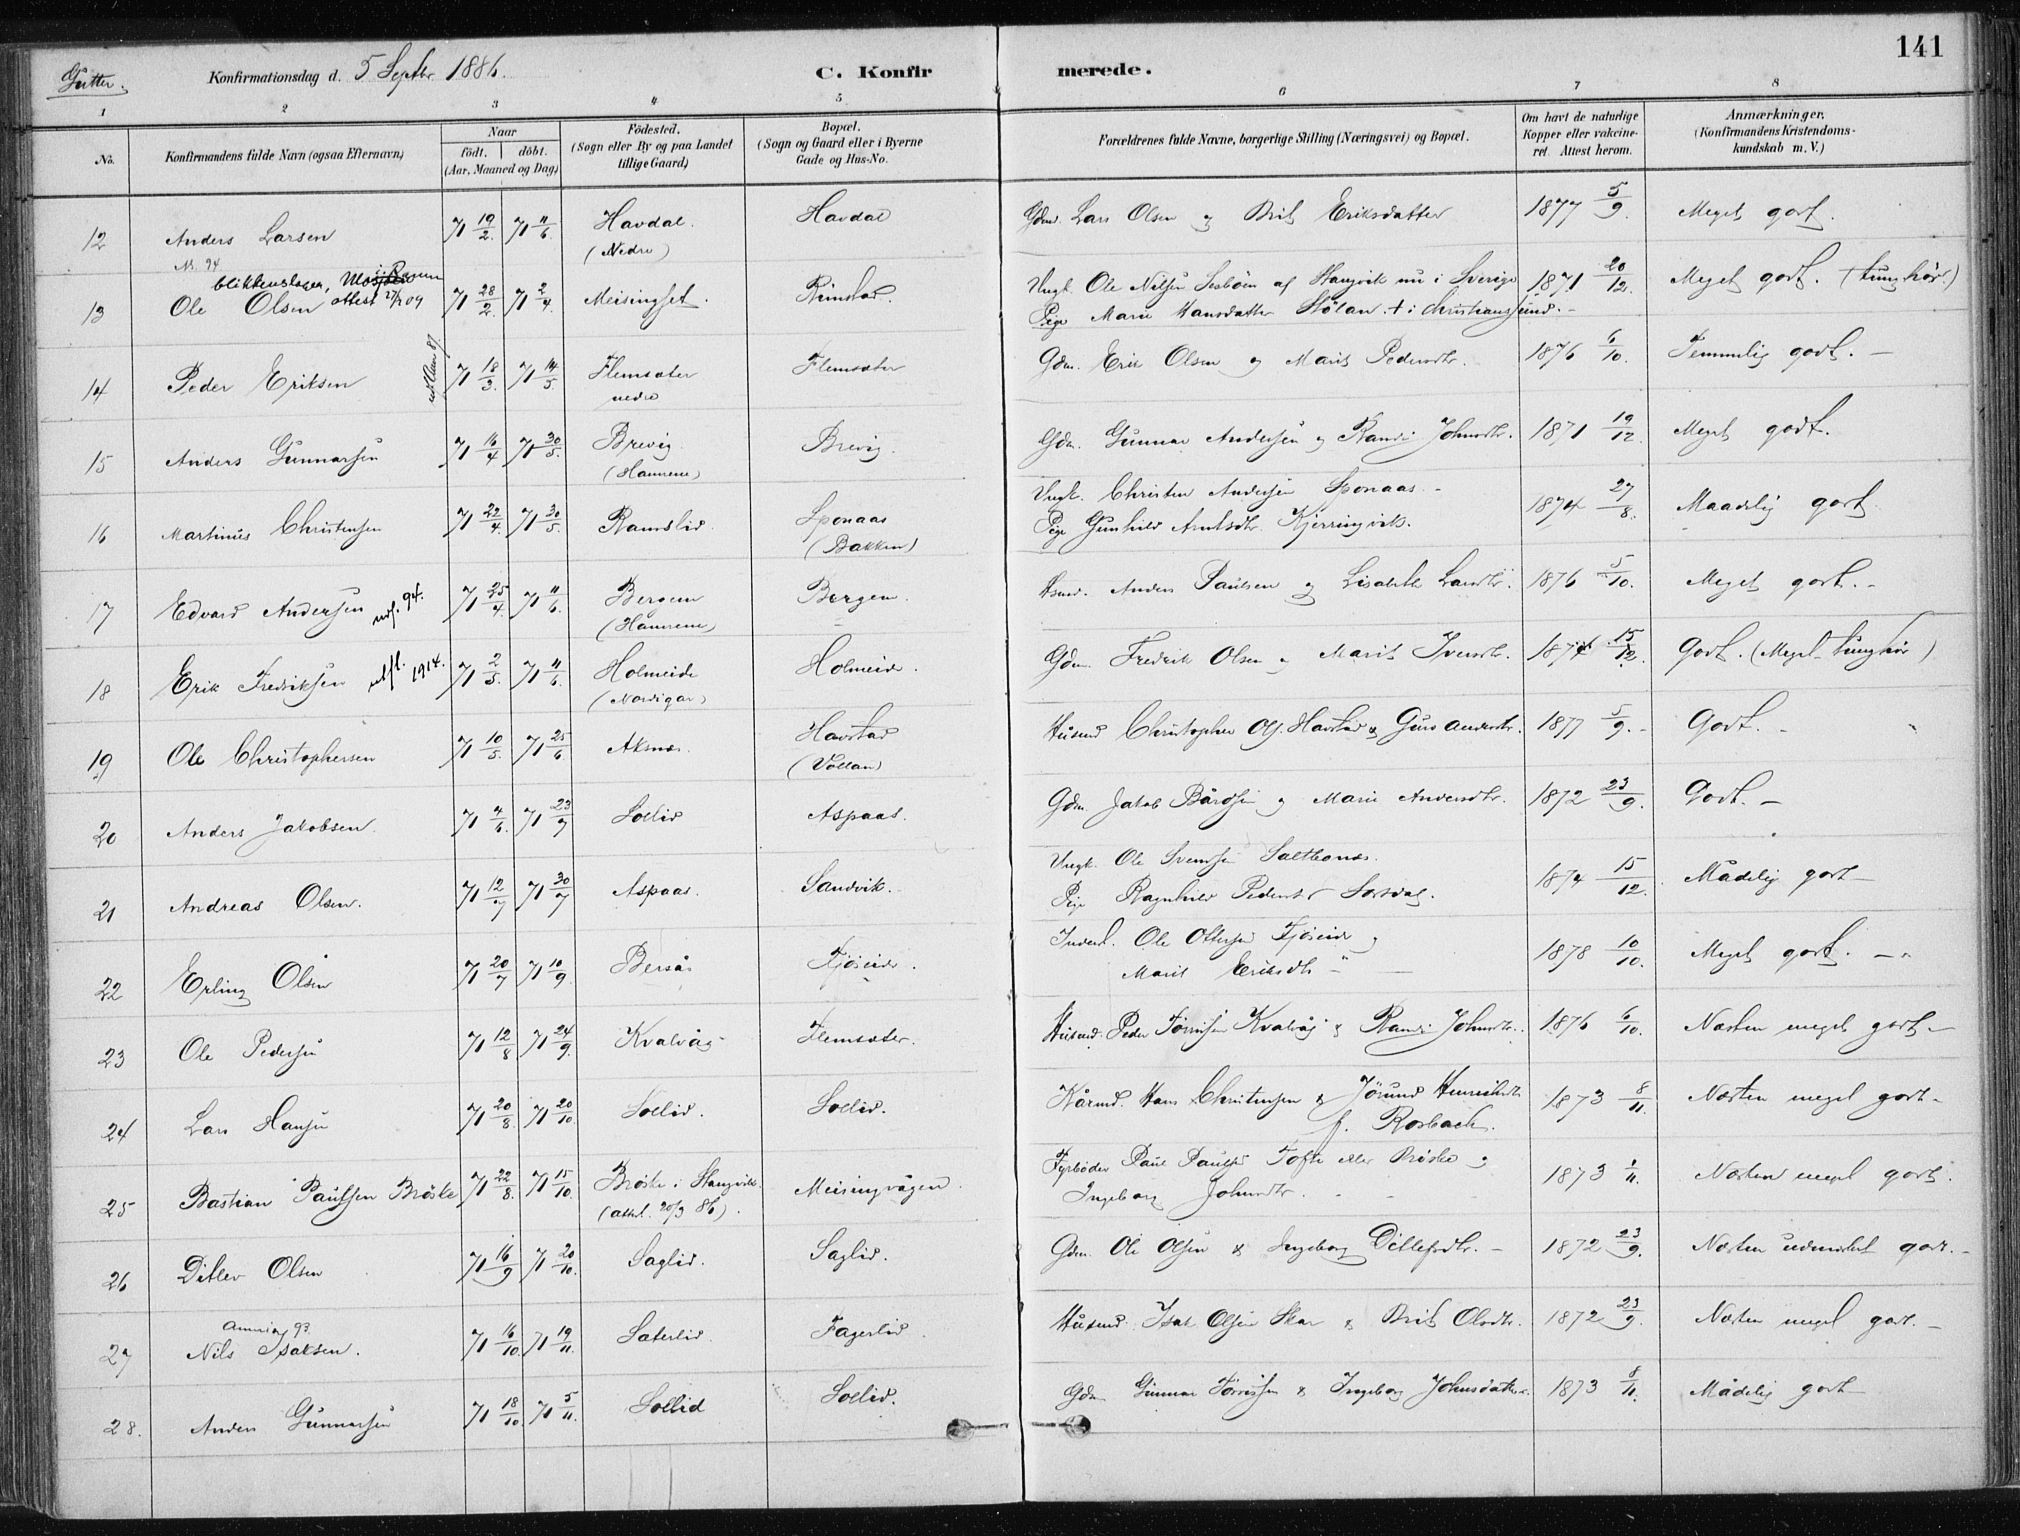 Gutter. Konfirmationsdag d. 5 Septbr. 1886. C. Konfirmerede. 141
1 2 3 4 5 6 7 8
No. Konfirmandens fulde Navn (ogsaa Efternavn) Naar født. døbt. (Aar, Maaned og Dag) Fødested. (Sogn eller By og paa Landet tillige Gaard) Bopæl. (Sogn og Gaard eller i Byerne Gade og Hus-No. Forældrenes fulde Navne, borgerlige Stilling (Næringsvei) og Bopæl. Om havt de naturlige Kopper eller vakcineret. Attest herom. Anmærkninger. (Konfirmandens Kristendomskundskab m. V.)
12 Anders Larsen 71 19/2 71 11/6 Havdal (Nedre) Havdal Gdm. Lars Olsen og Brit Eriksdatter 1877 5/9. Meget godt.
blikkenslager,
13 Ole Olsen attest 71 28/2 71 2/4 Meisingset. Rimstad. Ungk. Ole Nilsen af Stangvik nu i Sverige 1871 20/12. Meget godt. (tunghør.)
Pige Marie Hansdatter Stølan + i Christianssund.
14 Peder Eriksen 71 18/3 71 14/5 Flemsæter nedre Flemsæter Gdm. Erik Olsen og Marit Pedersdtr. 1876 6/10. Temmelig godt.
15 Anders Gunnarsen 71 16/4 71 30/5 Brevig (Hamrene) Brevig. Gdm. Gunnar Andersen og Randi Johnsdtr. 1871 19/12. Meget godt.
16 Martinus Christensen 71 22/4 71 30/5 Ramslid Sponaas (Bakken) Ungk. Christen Andersen Sponaas. 1874 27/8. Maadelig godt
Pige Gunhild Arntsdtr. Kjerringvik.
17 Edvard Andersen udf. 94. 71 25/4 71 11/6 Bergem (Hamrene) Bergem. Husmd. Anders Paulsen og Lisabeth Larsdtr. 1876 5/10. Meget godt.
18 Erik Fredriksen utfl. 1914. 71 2/5 71 11/6 Holmeide (Nordigar) Holmeide. Gdm. Fredrik Olsen og Marit Iversdtr. 1874 15/12. Godt. (Meget tunghør)
19 Ole Christophersen 71 10/5 71 25/6 Aksnæs. Havstad (Vollan) Husmd Christopher Ols. Havstad & Guro Andersdtr. 1877 5/9. Godt.
20 Anders Jakobsen 71 4/6 71 23/7 Sollid Aspaas. Gdm. Jakob Bårdsen og Marie Andersdtr. 1872 23/9. Godt.
21 Andreas Olsen. 71 12/7 71 30/7 Aspaas. Sandvik. Ungk. Ole Svendsen Saltbones. 1874 15/12. Mådelig godt
Pige Ragnhild Pedersdtr
22 Erling Olsen 71 20/7 71 10/9 Bersås Fjøseide. Inderst. Ole Ottersen Fjøseide og 1878 10/10. Meget godt.
Marit Eriksdtr "
23 Ole Pedersen 71 12/8 71 24/9. Kvalvåg Flemsæter. Husmd. Peder Tørrissen Kvalvåg & Randi Johnsdtr. 1876 6/10. Næsten meget godt
24 Lars Hansen 71 20/8. 71 20/10. Sollid. Sollid. Kårmd. Hans Christensen & Jørund Henriksdtr 1873 8/11. Næsten meget godt
f. Rosbach.
25 Bastian Paulsen Brøske 71 22/8. 71 15/10. Brøske i Stangvik. (attst. 20/3 86). Meisingvågen. Fyrbøder Paul Paulsen Tofte eller Brøske og 1873 1/11. Næsten meget godt.
Ingeborg Johnsdtr.
26 Ditlev Olsen 71 16/9 71 20/10. Saglid. Saglid. Gdm. Ole Olsen & Ingeborg Ditlefsdtr. 1872 23/9. Næsten udmerket godt.
27 Nils Isaksen. 71 16/10 71 19/11. Sæterlid. Fagerlid. Husmd. Isak Olsen Skar & Brit Olsdtr. 1872 23/9. Næsten meget godt.
28. Anders Gunnarsen 71 18/10 71 5/11. Sollid Sollid. Gdm Gunnar Tørrissen & Ingeborg Johnsdatter. 1873 8/11. Mådelig godt